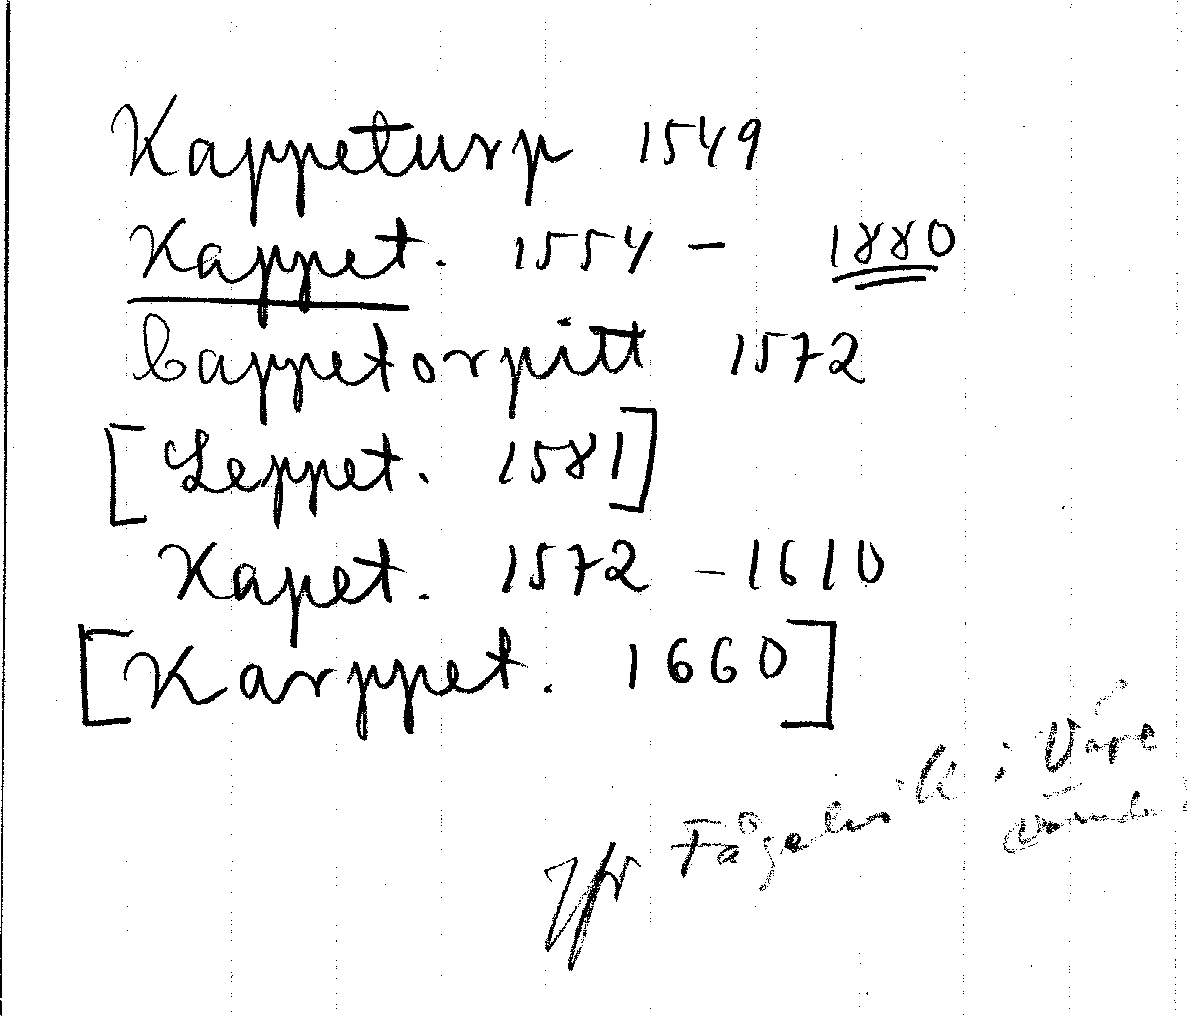 Kappeturp 1549
Kappet. 1554 – 1880
Cappetorpitt 1572
[Leppet. 1581]
Kapet. 1572 – 1610
[Karppet. 1660]
Jfr Fågelvik i